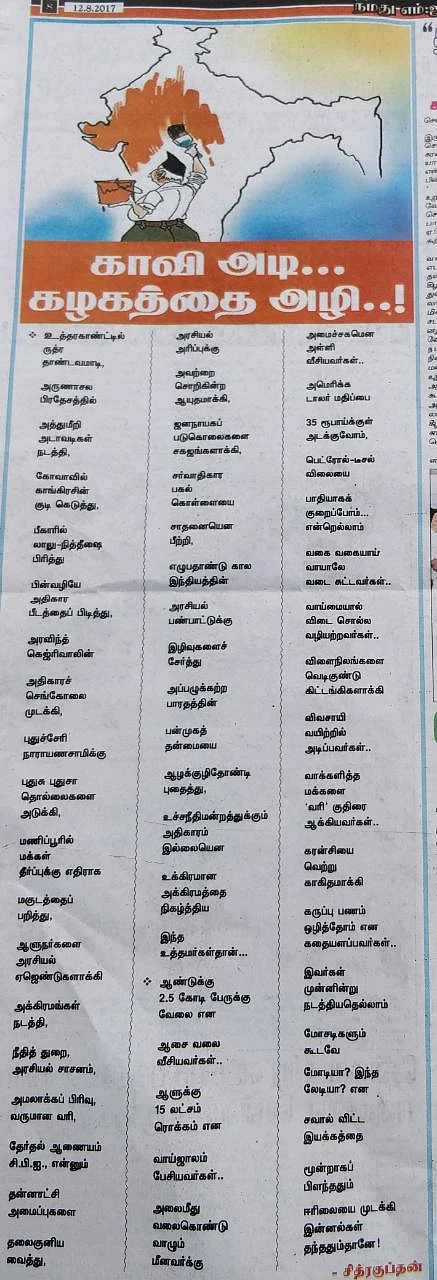 8
12.8.2017
நமது எம்.ஜி
காவி அடி...
கழகத்தை அழி..!
❖ உத்தரகாண்ட்டில்
ருத்ர
தாண்டவமாடி,
அருணாசல
பிரதேசத்தில்
அத்துமீறி
அடாவடிகள்
நடத்தி,
கோவாவில்
காங்கிரசின்
குடி கெடுத்து,
பீகாரில்
லாலு-நித்தீஷை
பிரித்து
பின்வழியே
அதிகார
பீடத்தைப் பிடித்து,
அரவிந்த்
கெஜ்ரிவாலின்
அதிகாரச்
செங்கோலை
முடக்கி,
புதுச்சேரி
நாராயணசாமிக்கு
புதுசு புதுசா
தொல்லைகளை
அடுக்கி,
மணிப்பூரில்
மக்கள்
தீர்ப்புக்கு எதிராக
மகுடத்தைப்
பறித்து,
ஆளுநர்களை
அரசியல்
ஏஜெண்டுகளாக்கி
அக்கிரமங்கள்
நடத்தி,
நீதித் துறை,
அரசியல் சாசனம்,
அமலாக்கப் பிரிவு,
வருமான வரி,
தேர்தல் ஆணையம்
சி.பி.ஐ., என்னும்
தன்னாட்சி
அமைப்புகளை
தலைகுனிய
வைத்து,
அரசியல்
அரிப்புக்கு
அவற்றை
சொறிகின்ற
ஆயுதமாக்கி,
ஜனநாயகப்
படுகொலைகளை
சகஜங்களாக்கி,
சர்வாதிகார
பகல்
கொள்ளையை
சாதனையென
பீற்றி,
எழுபதாண்டு கால
இந்தியத்தின்
அரசியல்
பண்பாட்டுக்கு
இழிவுகளைச்
சேர்த்து
அப்பழுக்கற்ற
பாரதத்தின்
பன்முகத்
தன்மையை
ஆழக்குழிதோண்டி
புதைத்து,
உச்சநீதிமன்றத்துக்கும்
அதிகாரம்
இல்லையென
உக்கிரமான
அக்கிரமத்தை
நிகழ்த்திய
இந்த
உத்தமர்கள்தான்...
❖ ஆண்டுக்கு
2.5 கோடி பேருக்கு
வேலை என
ஆசை வலை
வீசியவர்கள்..
ஆளுக்கு
15 லட்சம்
ரொக்கம் என
வாய்ஜாலம்
பேசியவர்கள்..
அலைமீது
வலைகொண்டு
வாழும்
மீனவர்க்கு
அமைச்சகமென
அள்ளி
வீசியவர்கள்..
அமெரிக்க
டாலர் மதிப்பை
35 ரூபாய்க்குள்
அடக்குவோம்,
பெட்ரோல்-டீசல்
விலையை
பாதியாகக்
குறைப்போம்...
என்றெல்லாம்
வகை வகையாய்
வாயாலே
வடை சுட்டவர்கள்..
வாய்மையால்
விடை சொல்ல
வழியற்றவர்கள்..
விளைநிலங்களை
வெடிகுண்டு
கிட்டங்கிகளாக்கி
விவசாயி
வயிற்றில்
அடிப்பவர்கள்..
வாக்களித்த
மக்களை
'வரி' குதிரை
ஆக்கியவர்கள்..
கரன்சியை
வெற்று
காகிதமாக்கி
கருப்பு பணம்
ஒழித்தோம் என
கதையளப்பவர்கள்..
இவர்கள்
முன்னின்று
நடத்தியதெல்லாம்
மோசடிகளும்
கூடவே
மோடியா? இந்த
லேடியா? என
சவால் விட்ட
இயக்கத்தை
மூன்றாகப்
பிளந்ததும்
ஈரிலையை முடக்கி
இன்னல்கள்
தந்ததும்தானே!
- சித்ரகுப்தன்